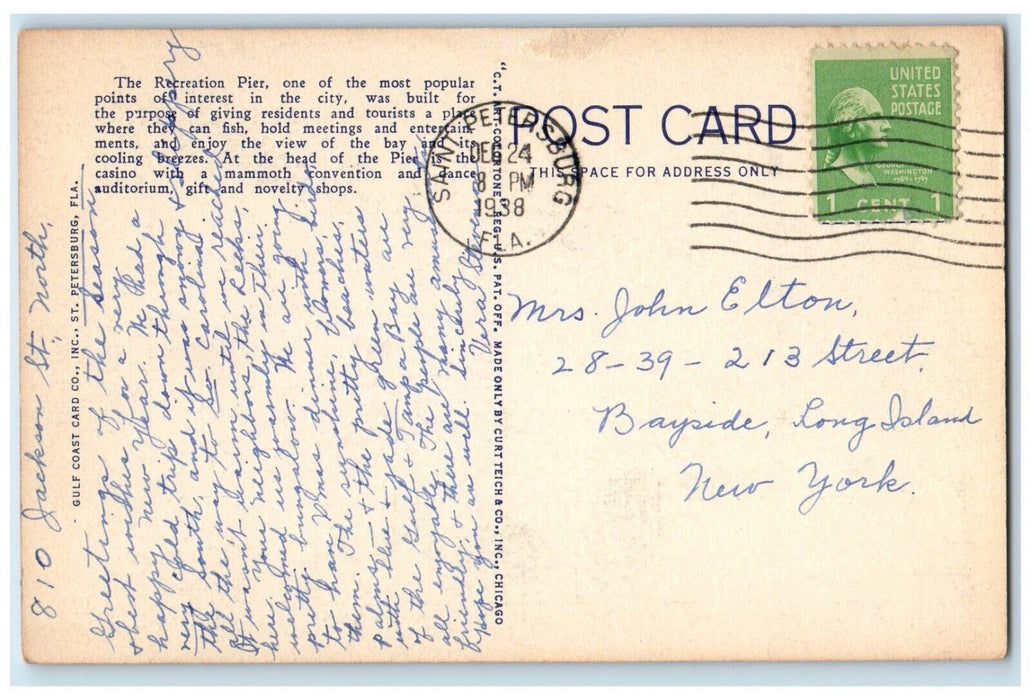 The Recreation Pier, one of the most popular
points of interest in the city, was built for
the purpose of giving residents and tourists a place
where they can fish, hold meetings and entertain-
ments, and enjoy the view of the bay and its
cooling breezes. At the head of the Pier is the
casino with a mammoth convention and dance
auditorium, gift and novelty shops.
GULF COAST CARD CO., INC., ST. PETERSBURG, FLA.
810 Jackson St, North,
Greetings of the season
& best wishes for a very
happy New Year. We had a
very cold trip down through
the South, and it was snowing & sleety
all the way to So. Carolina
It wasn't warm until we reached
here your neighbors, the Leeks,
welcomed us warmly in their
pretty bungalow. We are going
to have Xmas dinner with birds
them. The sunshine, flowers,
palms & the pretty beaches
with blue & jade green waters
of the Gulf & Tampa Bay are
all enjoyable. The people are very
friendly & there are many amuse-
you as well. Sincerely
Vera Stevenson
"C.T. ART-COLORTONE" REG. U.S. PAT. OFF. MADE ONLY BY CURT TEICH & CO., INC., CHICAGO
POST CARD
THIS SPACE FOR ADDRESS ONLY
SAINT PETERSBURG
DEC 24
8 PM
1938
FLA.
UNITED
STATES
POSTAGE
GEORGE
WASHINGTON
1789-1797
1 CENT 1
Mrs. John Elton,
28-39-213 Street,
Bayside, Long Island
New York.